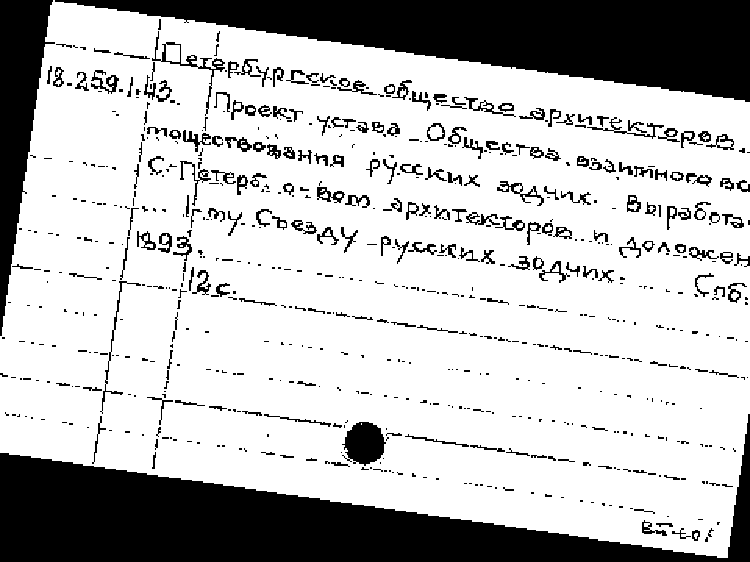 Петербургское общество архитекторов.
18.259.1.43. Проект устава Общества взаимного вс
помоществования русских зодчих. Выработа-
С.-Петерб. о-вом архитекторов и доложен
1-му Съезду русских зодчих. Спб.
1893.
12 с.